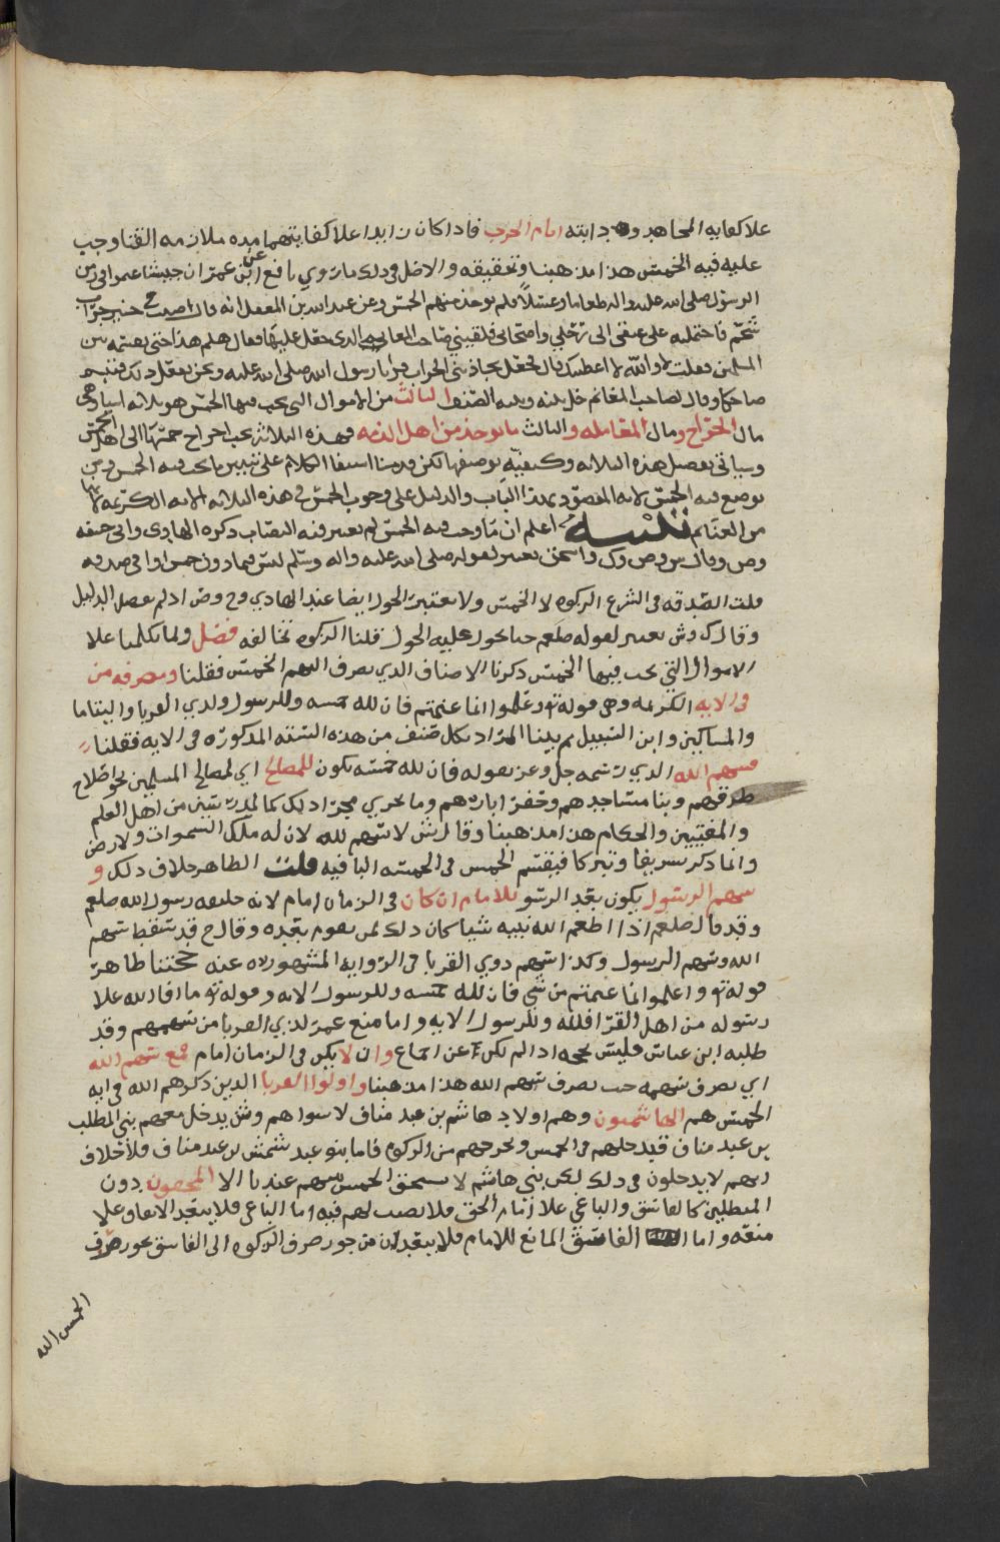 علا كفايه المجاهد و دابته ايام الحرب فاذا كان زايدا علا كفايتهما مده ملازمه القنا وجب
عليه فيه الخمس هذا مذهبنا وتحقيقه والاصل في ذلك ما روي نافع عن ابن عمر ان جيشا غنموا في زمن
الرسول صلى الله عليه واله طعاما وعسلا فلم يوخذ منهم الخمس وعن عبد الله بن المغفل انه قال اصبت في خيبر جراب
شحم فاحتملته على عنقي الى رحلي واصحابي فلقيني صاحب المغانم الذي جعل عليها فقال هلم هذا حتى نقسمه بين
المسلمين فقلت لا والله لا اعطيك قال فجعل يجاذبني الجراب فرانا رسول الله صلى الله عليه ونحن نفعل ذلك فتبسم
ضاحكا وقال لصاحب المغانم خل بينه وبينه الصنف الثالث من الاموال التي يجب فيها الخمس هو ثلاثه اشيا وهي
مال الخراج ومال المعامله والثالث ما يوخذ من اهل الذمه فهذه الثلاثه يجب اخراج خمسها الى اهل الخمس
وسياتي تفصيل هذه الثلاثه وكيفيه توصيفها لكن قدمنا اسفا الكلام على تبيين ما يجب فيه الخمس ومن
يوضع فيه الخمس لانه المقصود بهذا الباب والدليل على وجوب الخمس في هذه الثلاثه الايه الكريمه لانها
من الغنايم تنبيه اعلم ان ما وجب فيه الخمس لم يعتبر فيه النصاب ذكره الهادي وابي حنيفه
وص وقال س وص وك واسحق يعتبر لقوله صلى الله عليه واله وسلم ليس فيما دون خمس اواقي صدقه
قلت الصدقه في الشرع الزكوه لا الخمس ولا يعتبر الحول ايضا عند الهادي وح وص اذ لم يفصل الدليل
وقال ك وش يعتبر لقوله صلعم حتا يحول عليه الحول قلنا الزكوه تخالفه فصل ولما تكلمنا علا
الاموال التي يجب فيها الخمس ذكرنا الاصناف الذي يصرف اليهم الخمس فقلنا ومصرفه من
في الايه الكريمه وهي قوله تع واعلموا انما غنمتم فان لله خمسه وللرسول ولذي القربا واليتاما
والمساكين وابن السبيل ثم بينا المراد بكل صنف من هذه السته المذكوره في الايه فقلنا
فسهم الله الذي رسمه جل وعز بقوله فان لله خمسه يكون للمصالح اي لمصالح المسلمين نحو اصلاح
طرقهم وبنا مساجدهم وحفر ابارهم وما يجري مجرا ذلك كالمدرسين من اهل العلم
والمفتيين والحكام هذا مذهبنا وقال ش لا سهم لله لان له ملك السموات والارض
وانما ذكر تشريفا وتبركا فيقسم الخمس في الخمسه الباقيه قلت الظاهر خلاف ذلك و
سهم الرسول يكون بعد الرسول للامام ان كان في الزمان امام لانه خليفه رسول الله صلعم
وقد قال صلعم اذا اطعم الله نبيه شيا كان ذلك لمن يقوم بعده وقال ح قد سقط سهم
الله وسهم الرسول وكذا سهم ذوي القربا في الروايه المشهوره عنه حجتنا ظاهر
قوله تع واعلموا انما غنمتم من شي فان لله خمسه وللرسول الايه وقوله تع ما افا الله علا
رسوله من اهل القرا فلله وللرسول الايه واما منع عمر لذي القربا من سهمهم وقد
طلبه ابن عباس فليس بحجه اذ لم يكن عن اجماع وان لا يكن في الزمان امام فمع سهم الله
اي يصرف سهمه حيث يصرف سهم الله هذا مذهبنا واولوا القربا الذين ذكرهم الله في ايه
الخمس هم الهاشميون وهم اولاد هاشم بن عبد مناف لا سواهم وش يدخل معهم بني المطلب
بن عبد مناف فيدخلهم في الخمس ويخرجهم من الزكوه فاما بنو عبد شمس بن عبد مناف فلا خلاف
انهم لا يدخلون في ذلك لكن بني هاشم لا يستحق الخمس منهم عندنا الا المحقون دون
المبطلين كالفاسق والباغي علا امام الحق فلا نصيب لهم فيه اما الباغي فلا ينعقد الاتفاق علا
منعه واما الفاسق المانع للامام فلا يبعد ان من جوز صرف الزكوه الى الفاسق يجوز صرف
الخمس اليه